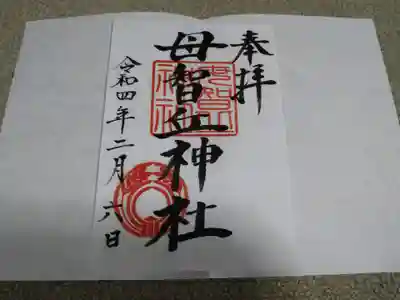 奉拝
母智丘神社
令和四年二月六日